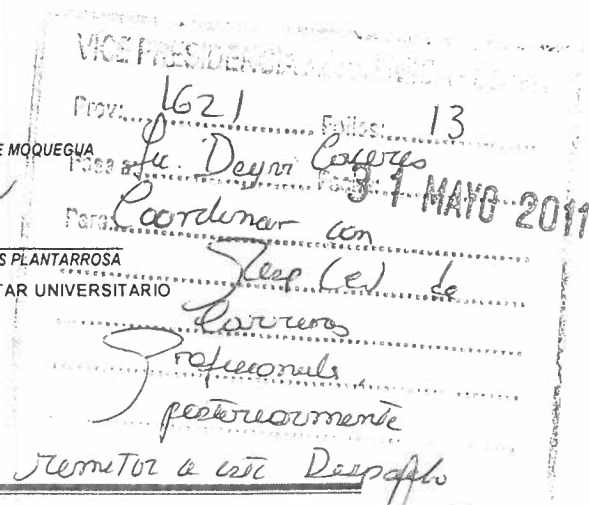 VICE PRESIDENCIA
Prov: 1621 Folios: 13
E MOQUEGUA
Pasa a: Lic. Deyvi Caceres
31 MAYO 2011
Para: Coordinar con
S PLANTARROSA
Jefe (e) de
TAR UNIVERSITARIO
Carreras
Profesionales
posteriormente
remitir a este Despacho